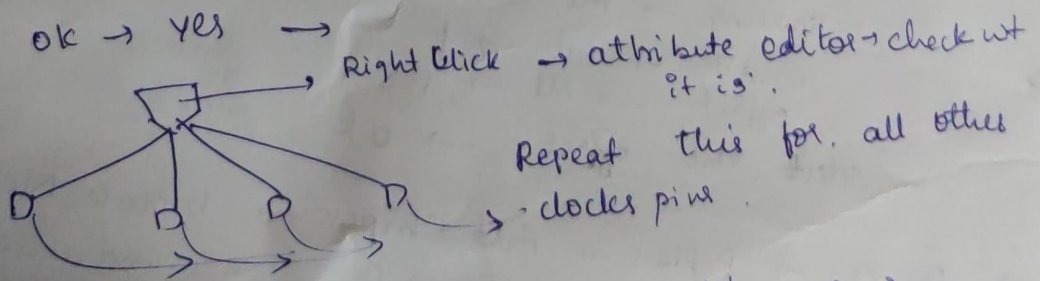 ok → yes →
Right Click → athribute editor → check wt
it is.
Repeat this for. all other
clocks pins.